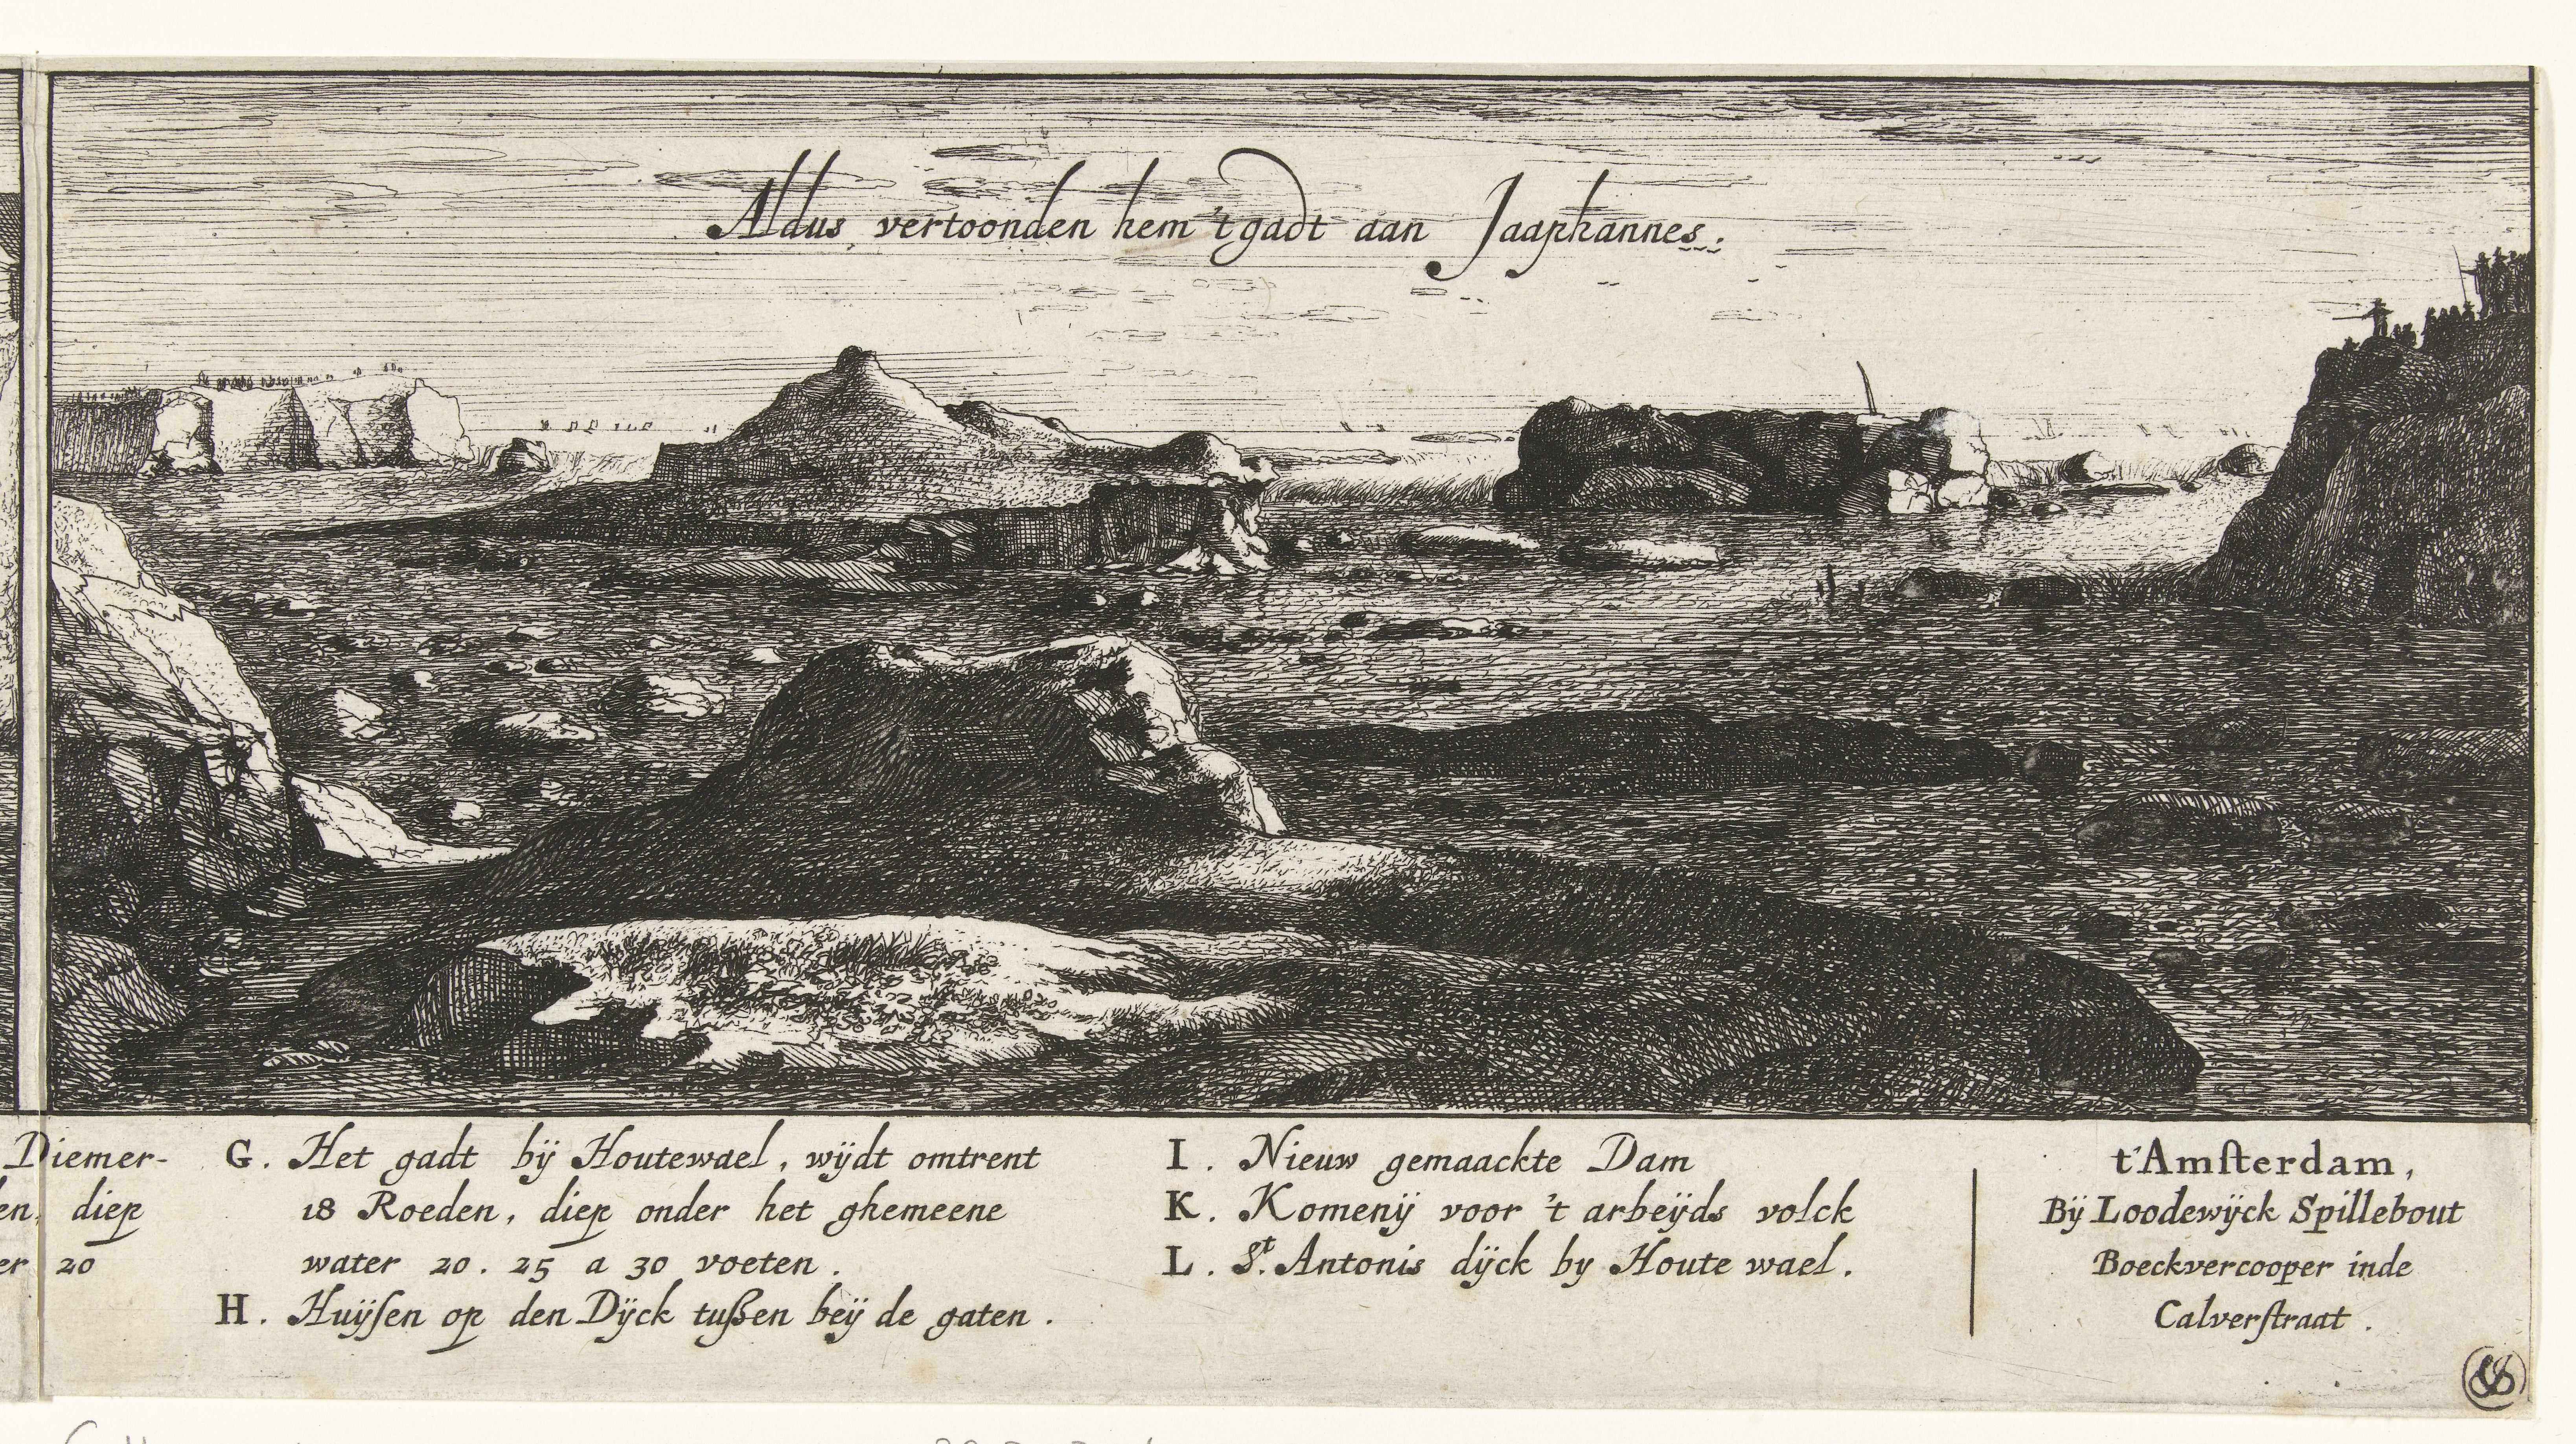 Aldus vertoonden hem 't gadt aan Jaaphannes.
Diemer-
diep
20
G. Het gadt bÿ Houtewael, wÿdt omtrent
18 Roeden, diep onder het ghemeene
water 20. 25 a 30 voeten.
H. Huÿsen op den Dÿck tußen beÿ de gaten.
I. Nieuw gemaackte Dam
K. Komenÿ voor 't arbeÿds volck
L. St. Antonis dÿck by Houte wael.
t'Amsterdam,
Bÿ Loodewÿck Spillebout
Boeckvercooper inde
Calverstraat.